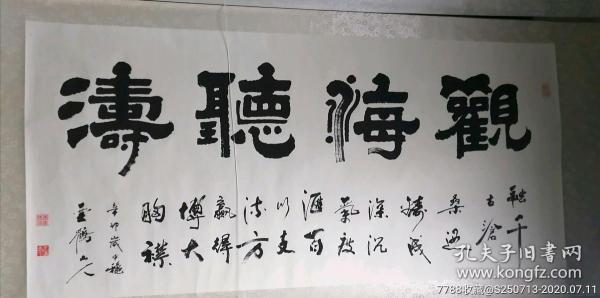 觀海聽濤
融千
古滄
桑遂
鑄成
深沉
氣度
匯百
川支
流方
贏得
博大
胸襟
辛卯歲
山人
孔夫子旧书网
www.kongfz.com
7788收藏@S250713-2020.07.11